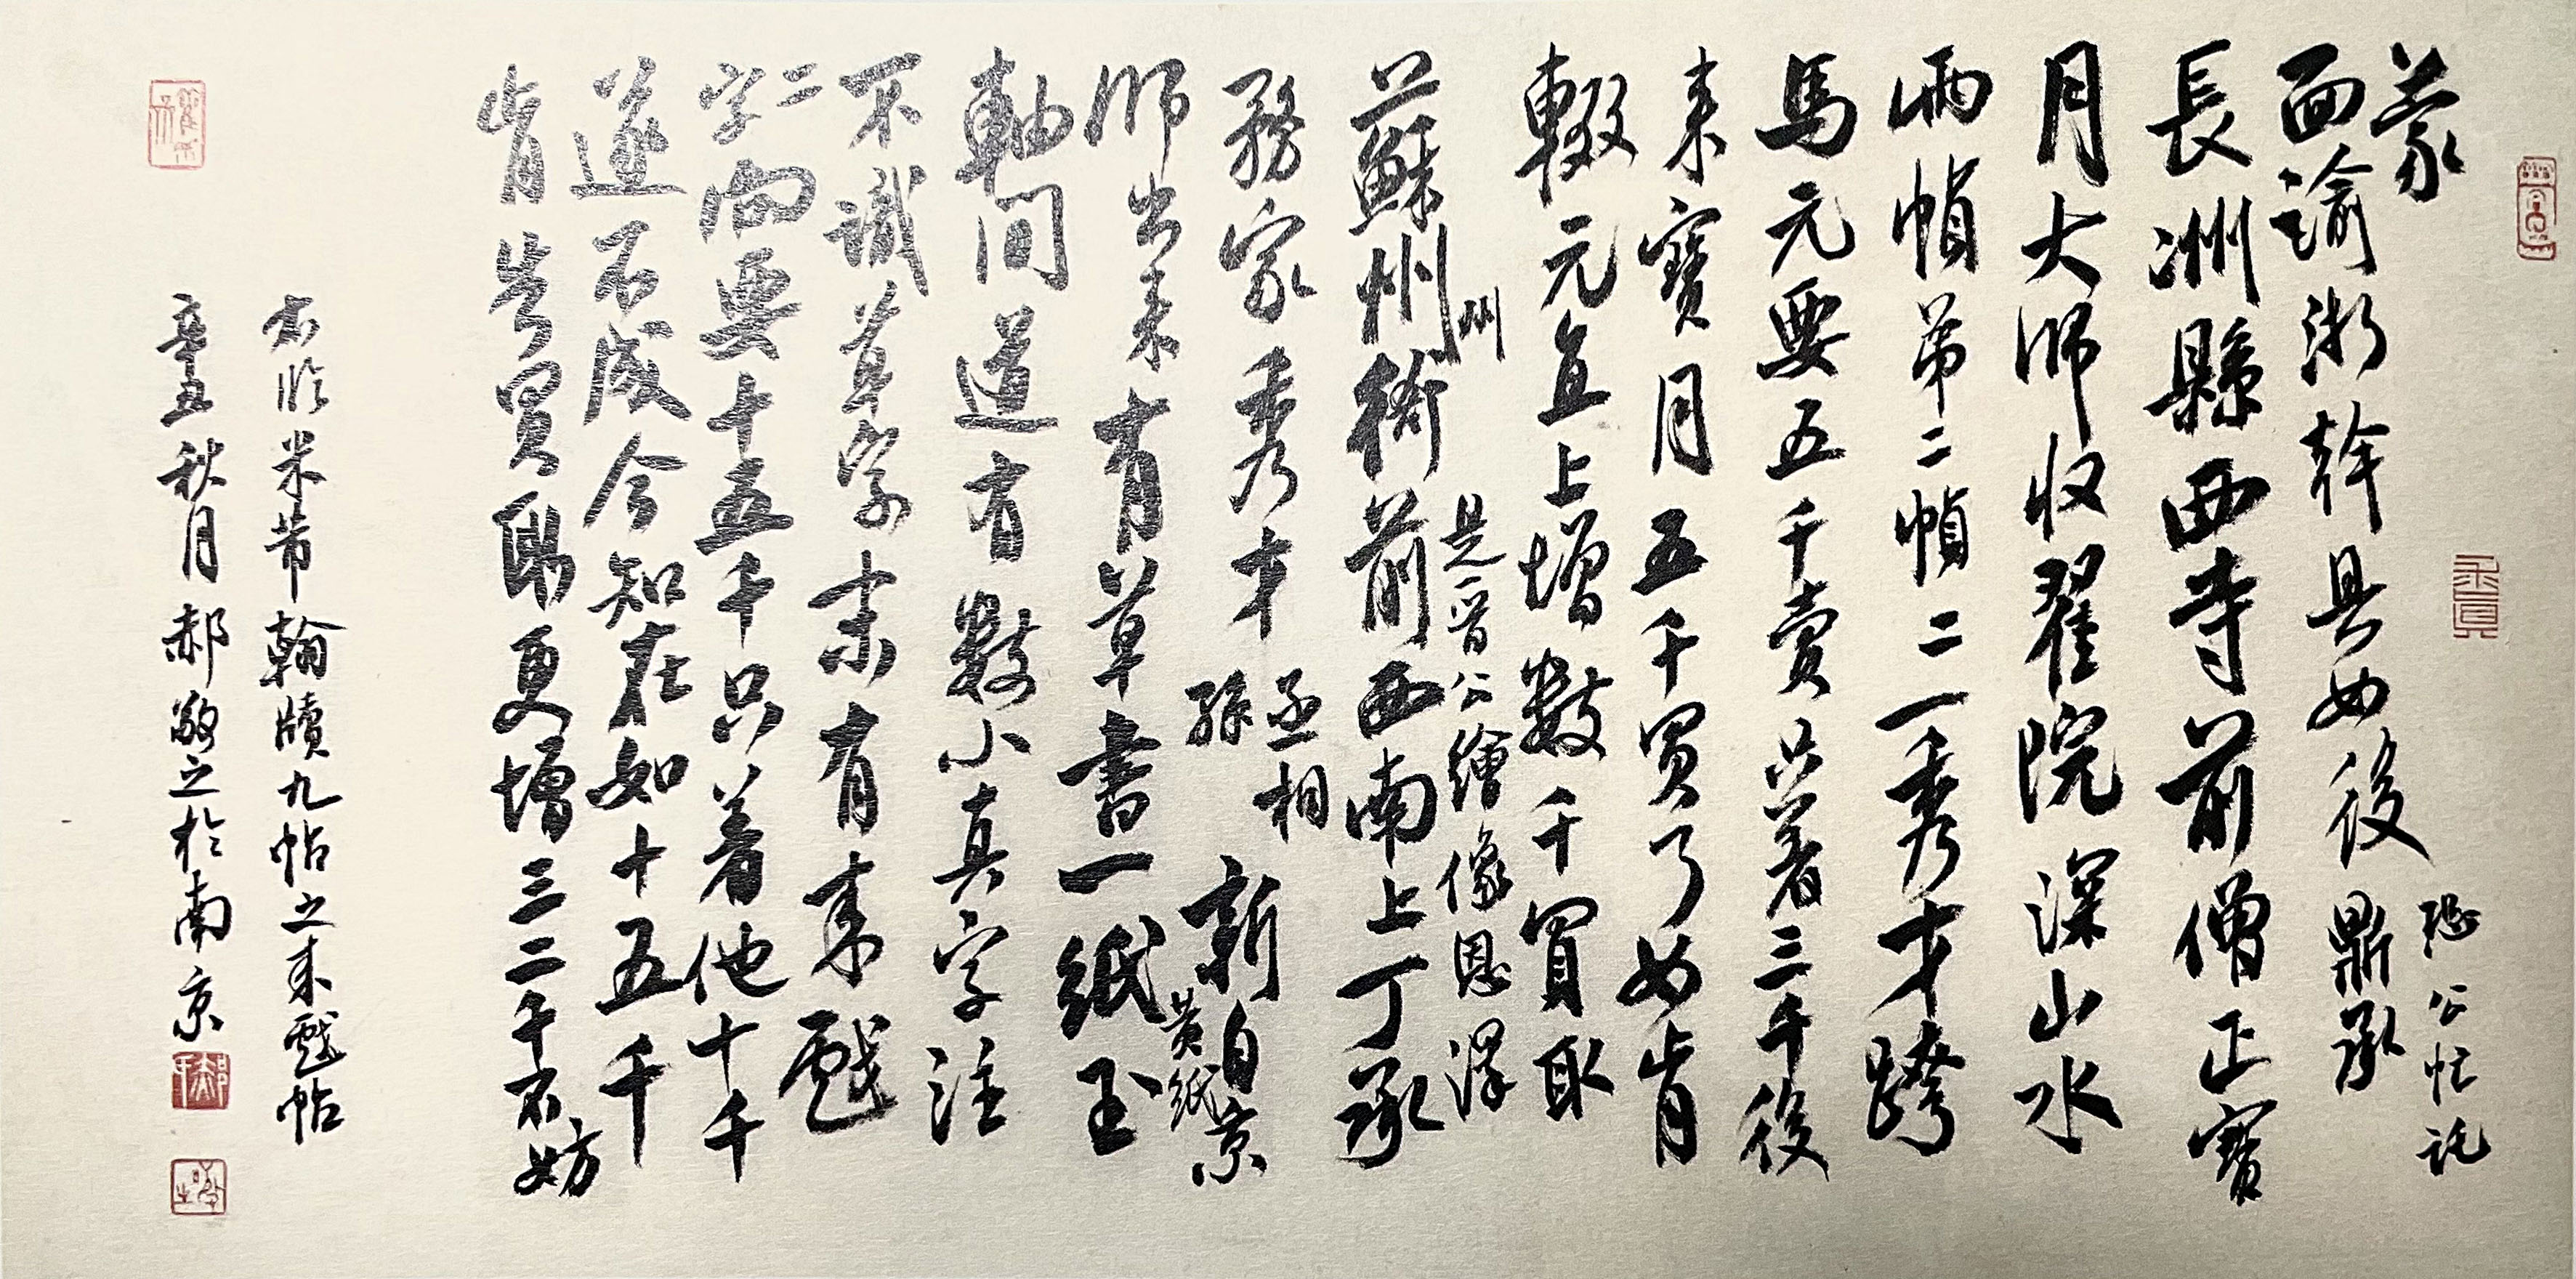 蒙
恐公忙託
面諭浙幹具如後鼎承
長洲縣西寺前僧正寶
月大師收翟院深山水
兩幀第二幀二一秀才跨
馬元要五千賣只著三千後
來寶月五千買了如肯
輟元直上增數千買取
州
是一晉公繪像恩澤
蘇州衙前西南上丁承
務家秀才
丞相
孫
新自京
黄紙
師出來有草書一紙玉
軸間道有數小真字注
不識草字末有來戲
二字向要十五千只着他十千
遂不成今知在如十五千
肯告買取更增三二千不妨
右臨米芾翰牘九帖之來戲帖
辛丑秋月郝敬之於南京